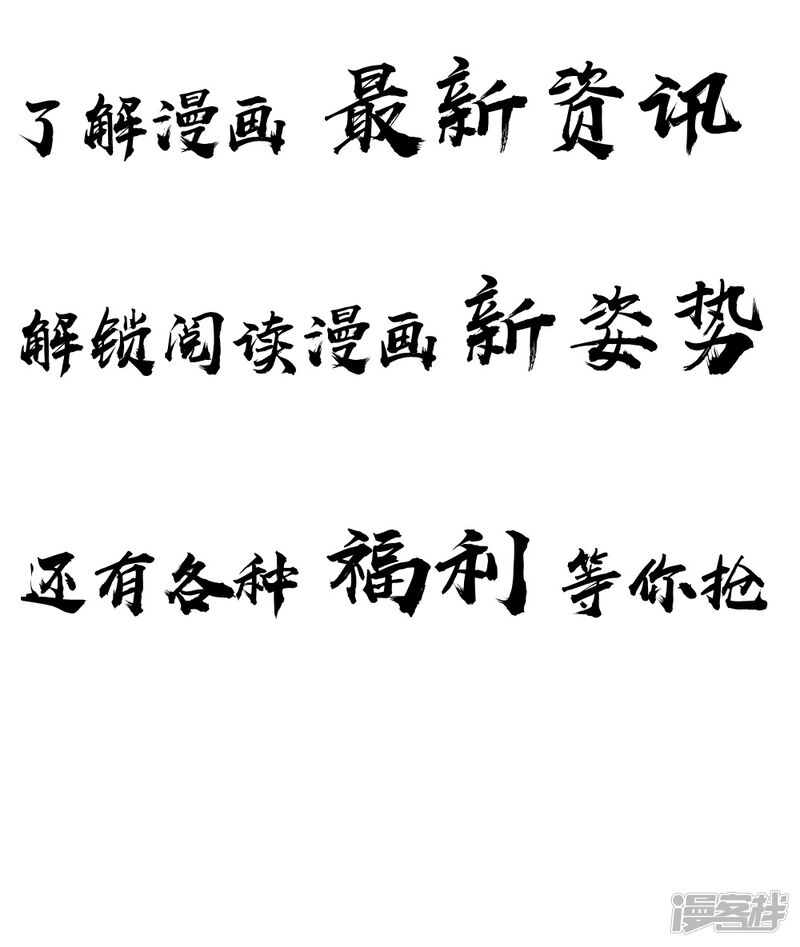 了解漫画 最新资讯
解锁阅读漫画新姿势
还有各种 福利 等你抢
漫客栈